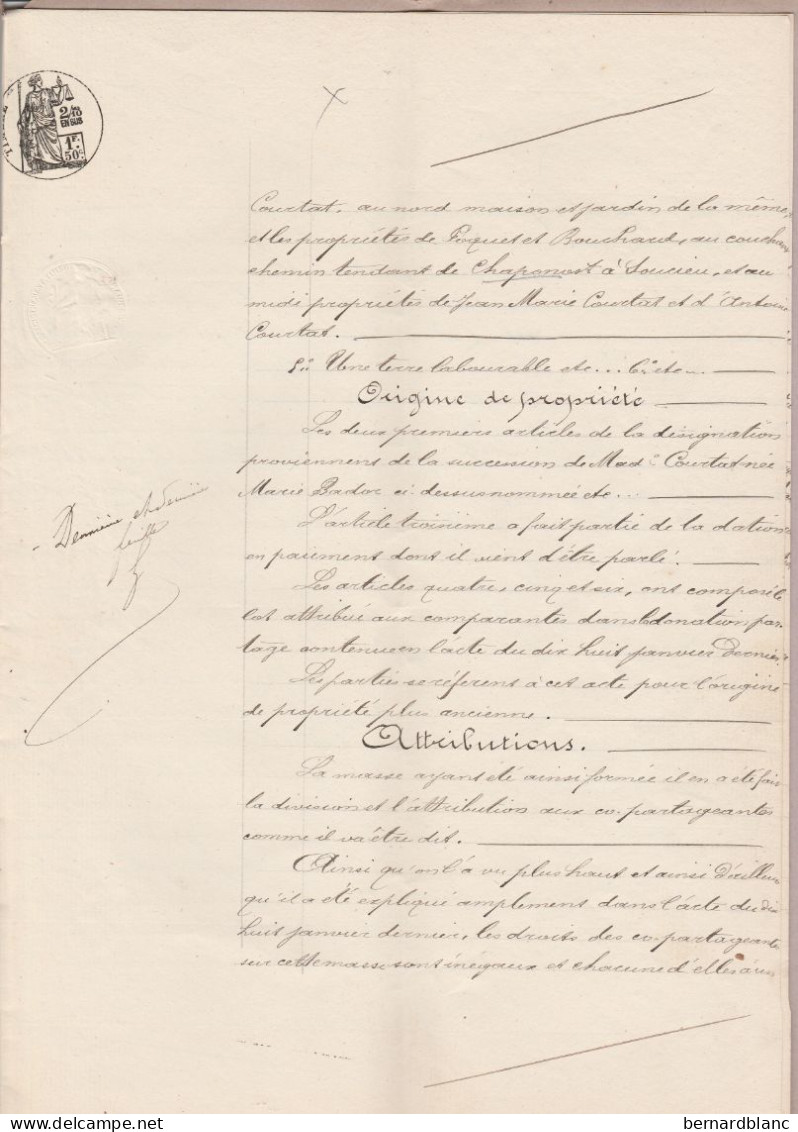 2/10
EN SUS
1F.
50c
Courtat, au nord maison et jardin de la même,
et les propriétés de Poquet et Bouchard, au couchant
chemin tendant de Chaponost à Soucieu, et au
midi propriétés de Jean Marie Courtat et d'Antoine
Courtat.
5° Une terre labourable etc...
Origine de propriété
Les deux premiers articles de la désignation
proviennent de la succession de Mad.e Courtat née
Marie Bador ci-dessus nommée etc...
L'article troisième a fait partie de la dation
en paiement dont il vient d'être parlé.
Dernière et
feuille
Les articles quatre, cinq et six, ont composé le
lot attribué aux comparantes dans la donation par-
tage contenue en l'acte du dix huit janvier dernier.
Les parties se réfèrent à cet acte pour l'origine
de propriété plus ancienne.
Attributions.
La masse ayant été ainsi formée il en a été fait
la division et l'attribution aux co-partageantes
comme il va être dit.
Ainsi qu'on l'a vu plus haut et ainsi d'ailleurs
qu'il a été expliqué amplement dans l'acte du dix
huit janvier dernier, les droits des co-partageantes
sur cette masse sont inégaux et chacune d'elles a un
bernardblanc